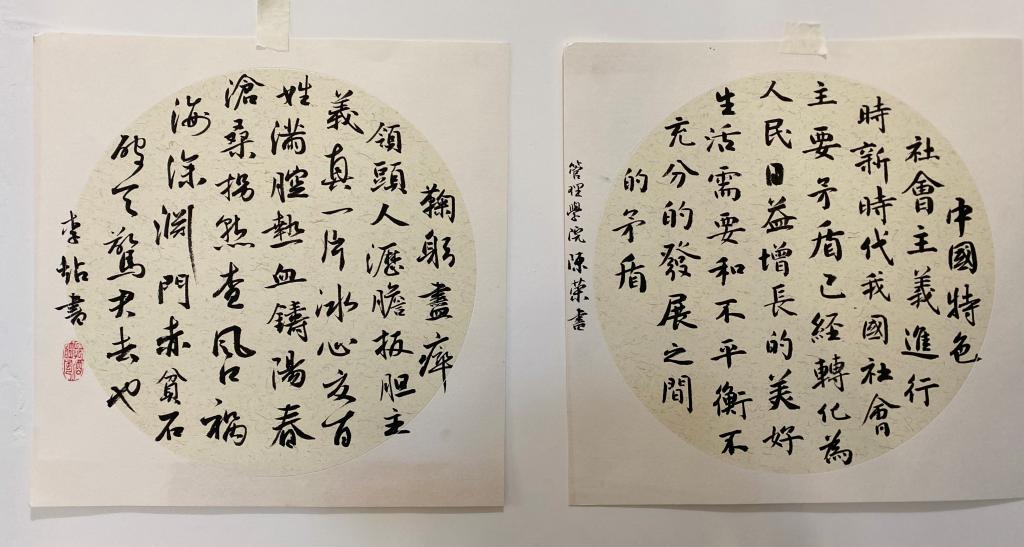 中國特色
社會主義進行
時新時代我國社會
主要矛盾已經轉化為
人民日益增長的美好
生活需要和不平衡不
充分的發展之間
的矛盾
管理學院陳榮書
鞠躬盡瘁
領頭人瀝膽披胆主
義真一片冰心交百
姓滿腔熱血鑄陽春
滄桑揚然查風口禍
海深淵門赤貧石
破天驚尹去也
李喆書